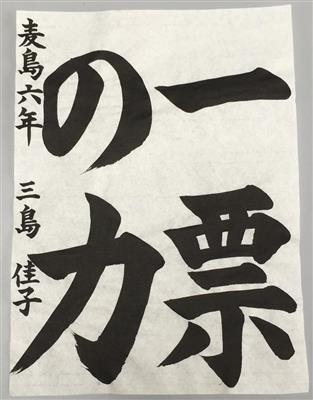 一票
の力
麦島六年 三島佳子